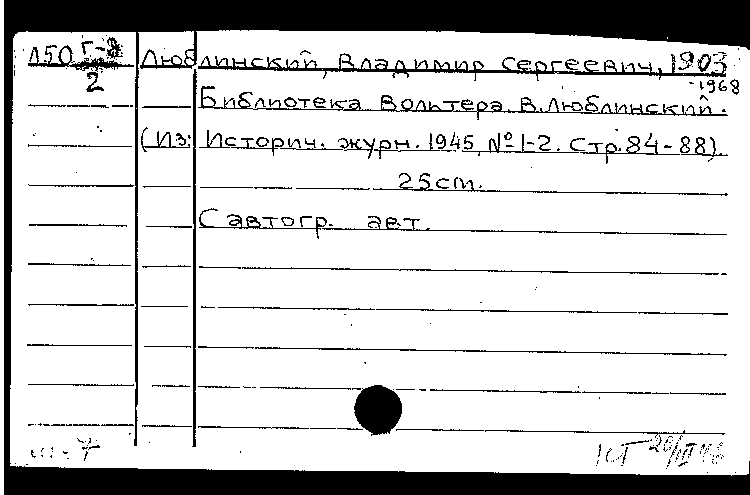 Л50 Г-8
2
Люблинский, Владимир Сергеевич, 1903
-1968
Библиотека Вольтера. В. Люблинский.
(Из: Историч. журн. 1945, № 1-2. Стр. 84-88).
25 cm.
С автогр. авт.
III-7